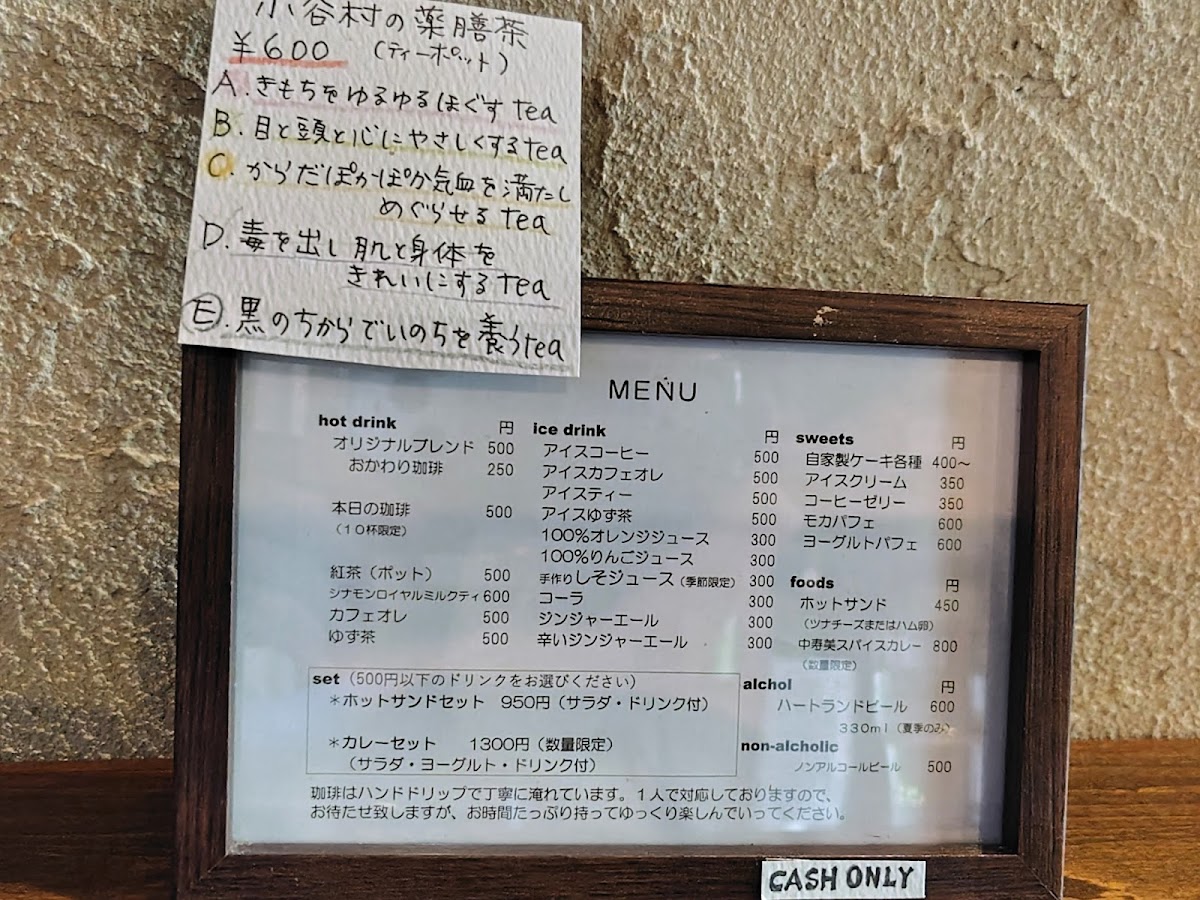 小谷村の薬膳茶
¥600 (ティーポット)
A. きもちをゆるゆるほぐす tea
B. 目と頭と心にやさしくする tea
C. からだぽかぽか気血を満たし
めぐらせる tea
D. 毒を出し肌と身体を
きれいにする tea
E. 黒のちからでいのちを養う tea
MENU
hot drink 円
オリジナルブレンド 500
おかわり珈琲 250
本日の珈琲 500
(10杯限定)
紅茶(ポット) 500
シナモンロイヤルミルクティ 600
カフェオレ 500
ゆず茶 500
ice drink 円
アイスコーヒー 500
アイスカフェオレ 500
アイスティー 500
アイスゆず茶 500
100%オレンジジュース 300
100%りんごジュース 300
手作りしそジュース(季節限定) 300
コーラ 300
ジンジャーエール 300
辛いジンジャーエール 300
sweets 円
自家製ケーキ各種 400~
アイスクリーム 350
コーヒーゼリー 350
モカパフェ 600
ヨーグルトパフェ 600
foods 円
ホットサンド 450
(ツナチーズまたはハム卵)
中寿美スパイスカレー 800
(数量限定)
set (500円以下のドリンクをお選びください)
*ホットサンドセット 950円(サラダ・ドリンク付)
*カレーセット 1300円(数量限定)
(サラダ・ヨーグルト・ドリンク付)
alchol 円
ハートランドビール 600
330ml(夏季のみ)
non-alcholic
ノンアルコールビール 500
珈琲はハンドドリップで丁寧に淹れています。1人で対応しておりますので、
お待たせ致しますが、お時間たっぷり持ってゆっくり楽しんでいってください。
CASH ONLY